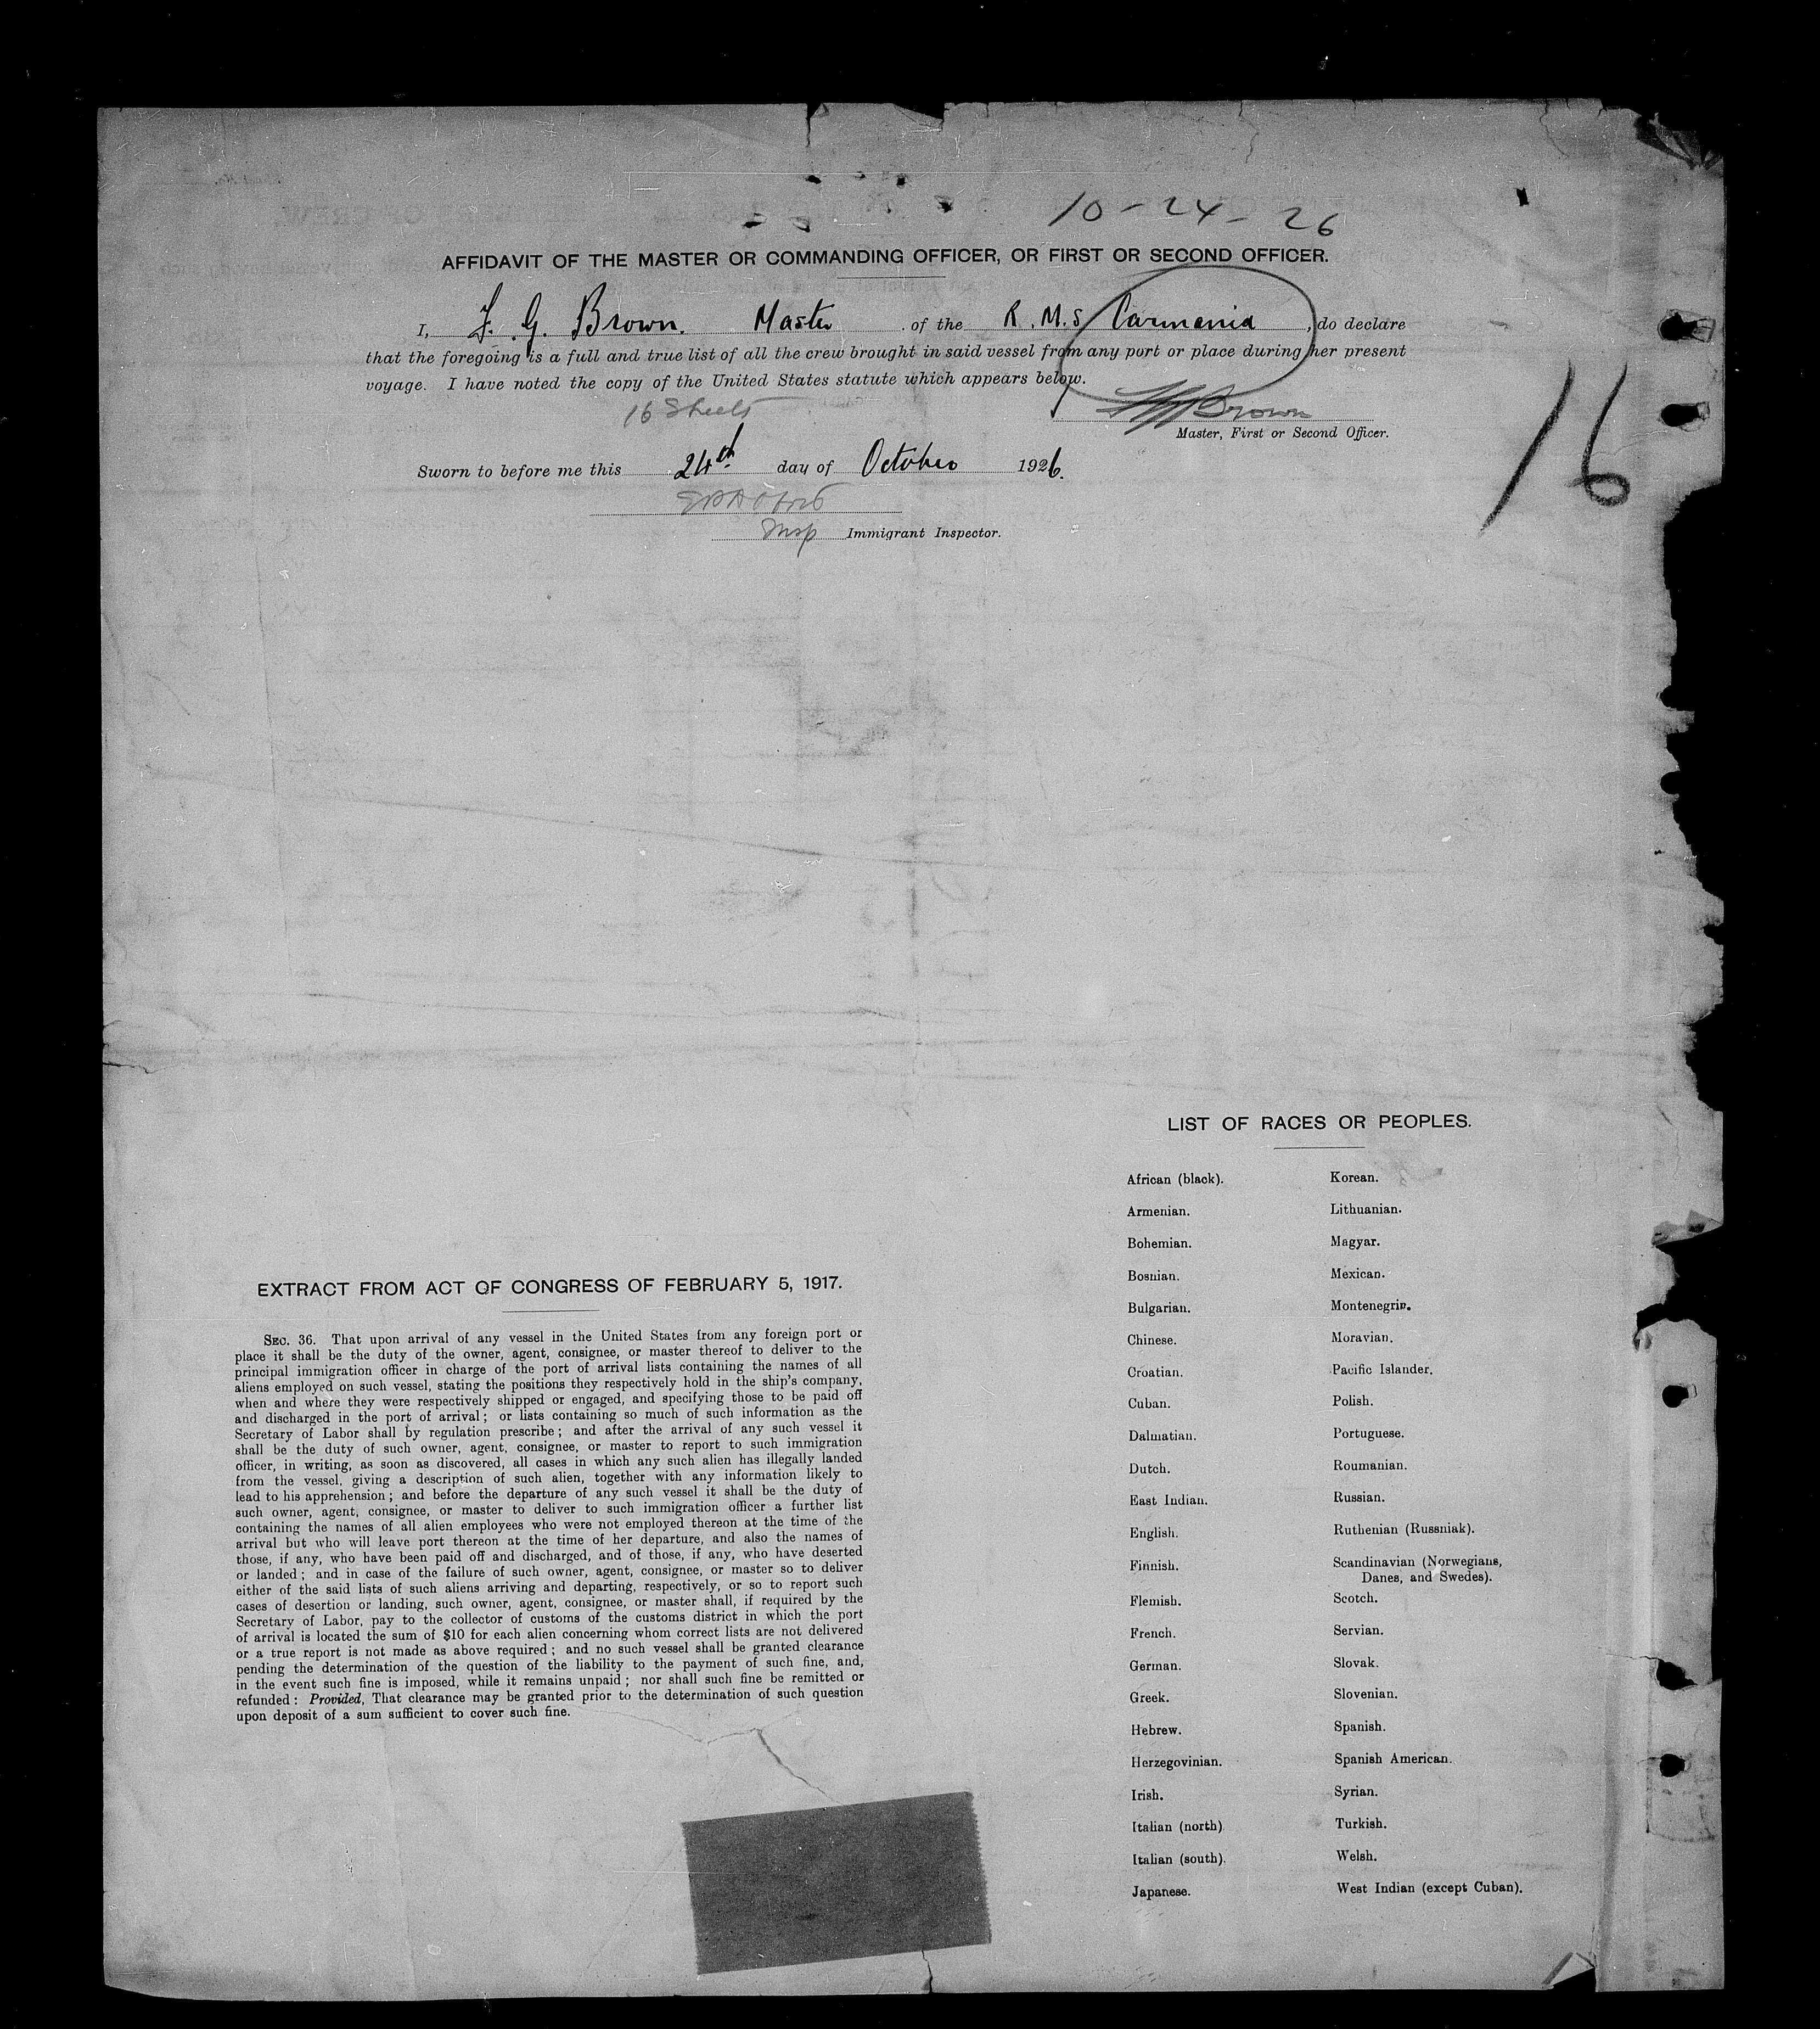 10-24-26
AFFIDAVIT OF THE MASTER OR COMMANDING OFFICER, OR FIRST OR SECOND OFFICER.
I, F. G. Brown. Master of the R.M.S Carmania, do declare
that the foregoing is a full and true list of all the crew brought in said vessel from any port or place during her present
voyage. I have noted the copy of the United States statute which appears below.
16 Sheets
Brown
Master, First or Second Officer.
16
Sworn to before me this 24th day of October 1926.
Insp Immigrant Inspector.
LIST OF RACES OR PEOPLES.
African (black). Korean.
Armenian. Lithuanian.
Bohemian. Magyar.
Bosnian. Mexican.
Bulgarian. Montenegrin.
Chinese. Moravian.
Croatian. Pacific Islander.
Cuban. Polish.
Dalmatian. Portuguese.
Dutch. Roumanian.
East Indian. Russian.
English. Ruthenian (Russniak).
Finnish. Scandinavian (Norwegians,
Danes, and Swedes).
Flemish. Scotch.
French. Servian.
German. Slovak.
Greek. Slovenian.
Hebrew. Spanish.
Herzegovinian. Spanish American.
Irish. Syrian.
Italian (north) Turkish.
Italian (south). Welsh.
Japanese. West Indian (except Cuban).
EXTRACT FROM ACT OF CONGRESS OF FEBRUARY 5, 1917.
SEC. 36. That upon arrival of any vessel in the United States from any foreign port or
place it shall be the duty of the owner, agent, consignee, or master thereof to deliver to the
principal immigration officer in charge of the port of arrival lists containing the names of all
aliens employed on such vessel, stating the positions they respectively hold in the ship's company,
when and where they were respectively shipped or engaged, and specifying those to be paid off
and discharged in the port of arrival; or lists containing so much of such information as the
Secretary of Labor shall by regulation prescribe; and after the arrival of any such vessel it
shall be the duty of such owner, agent, consignee, or master to report to such immigration
officer, in writing, as soon as discovered, all cases in which any such alien has illegally landed
from the vessel, giving a description of such alien, together with any information likely to
lead to his apprehension; and before the departure of any such vessel it shall be the duty of
such owner, agent, consignee, or master to deliver to such immigration officer a further list
containing the names of all alien employees who were not employed thereon at the time of the
arrival but who will leave port thereon at the time of her departure, and also the names of
those, if any, who have been paid off and discharged, and of those, if any, who have deserted
or landed; and in case of the failure of such owner, agent, consignee, or master so to deliver
either of the said lists of such aliens arriving and departing, respectively, or so to report such
cases of desertion or landing, such owner, agent, consignee, or master shall, if required by the
Secretary of Labor, pay to the collector of customs of the customs district in which the port
of arrival is located the sum of $10 for each alien concerning whom correct lists are not delivered
or a true report is not made as above required; and no such vessel shall be granted clearance
pending the determination of the question of the liability to the payment of such fine, and,
in the event such fine is imposed, while it remains unpaid; nor shall such fine be remitted or
refunded: Provided, That clearance may be granted prior to the determination of such question
upon deposit of a sum sufficient to cover such fine.